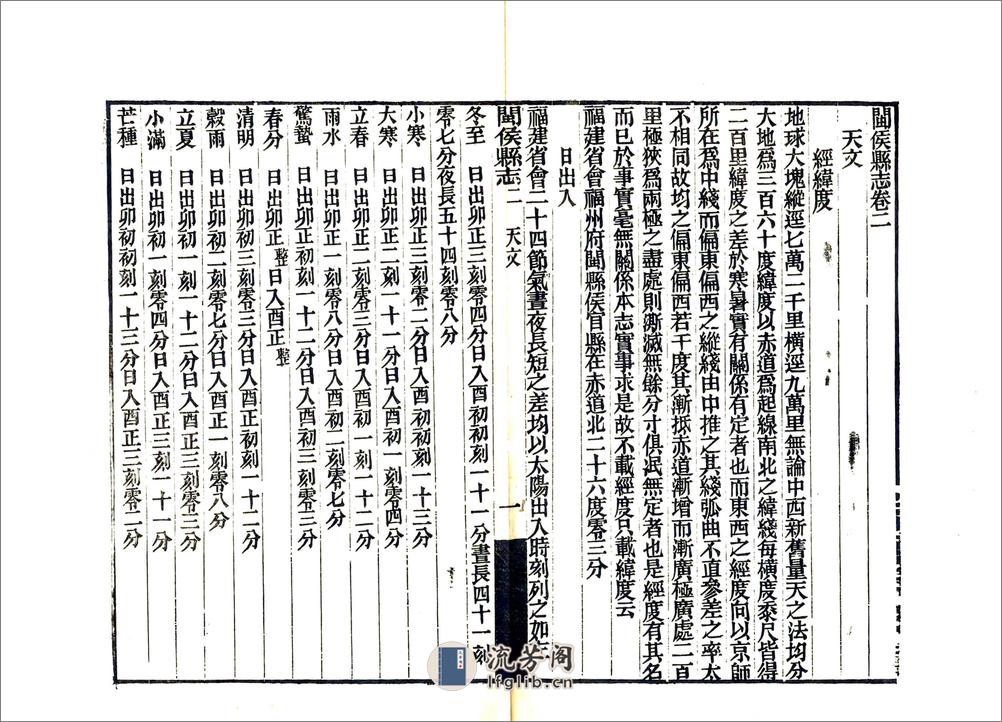 閩侯縣志卷二
天文
經緯度
地球大塊縱逕七萬二千里橫逕九萬里無論中西新舊量天之法均分
大地爲三百六十度緯度以赤道爲起線南北之緯綫每橫度黍尺皆得
二百里緯度之差於寒暑實有關係有定者也而東西之經度向以京師
所在爲中綫而偏東偏西之縱綫由中推之其綫弧曲不直參差之率太
不相同故均之偏東偏西若干度其漸抵赤道漸增而漸廣極廣處二百
里極狹爲兩極之盡處則漸滅無餘分寸俱泯無定者也是經度有其名
而已於事實毫無關係本志實事求是故不載經度只載緯度云
福建省會福州府閩縣侯官縣在赤道北二十六度零三分
日出入
福建省會二十四節氣晝夜長短之差均以太陽出入時刻列之如左
閩侯縣志二 天文 一
冬至 日出卯正三刻零四分日入酉初初刻一十一分晝長四十一刻
零七分夜長五十四刻零八分
小寒 日出卯正三刻零二分日入酉初初刻一十三分
大寒 日出卯正二刻一十一分日入酉初一刻零四分
立春 日出卯正二刻零三分日入酉初一刻一十二分
雨水 日出卯正一刻零八分日入酉初二刻零七分
驚蟄 日出卯正初刻一十二分日入酉初三刻零三分
春分 日出卯正整日入酉正整
清明 日出卯初三刻零三分日入酉正初刻一十二分
穀雨 日出卯初二刻零七分日入酉正一刻零八分
立夏 日出卯初一刻一十二分日入酉正二刻零三分
小滿 日出卯初一刻零四分日入酉正二刻一十一分
芒種 日出卯初初刻一十三分日入酉正三刻零二分
流芳阁
lfglib.cn